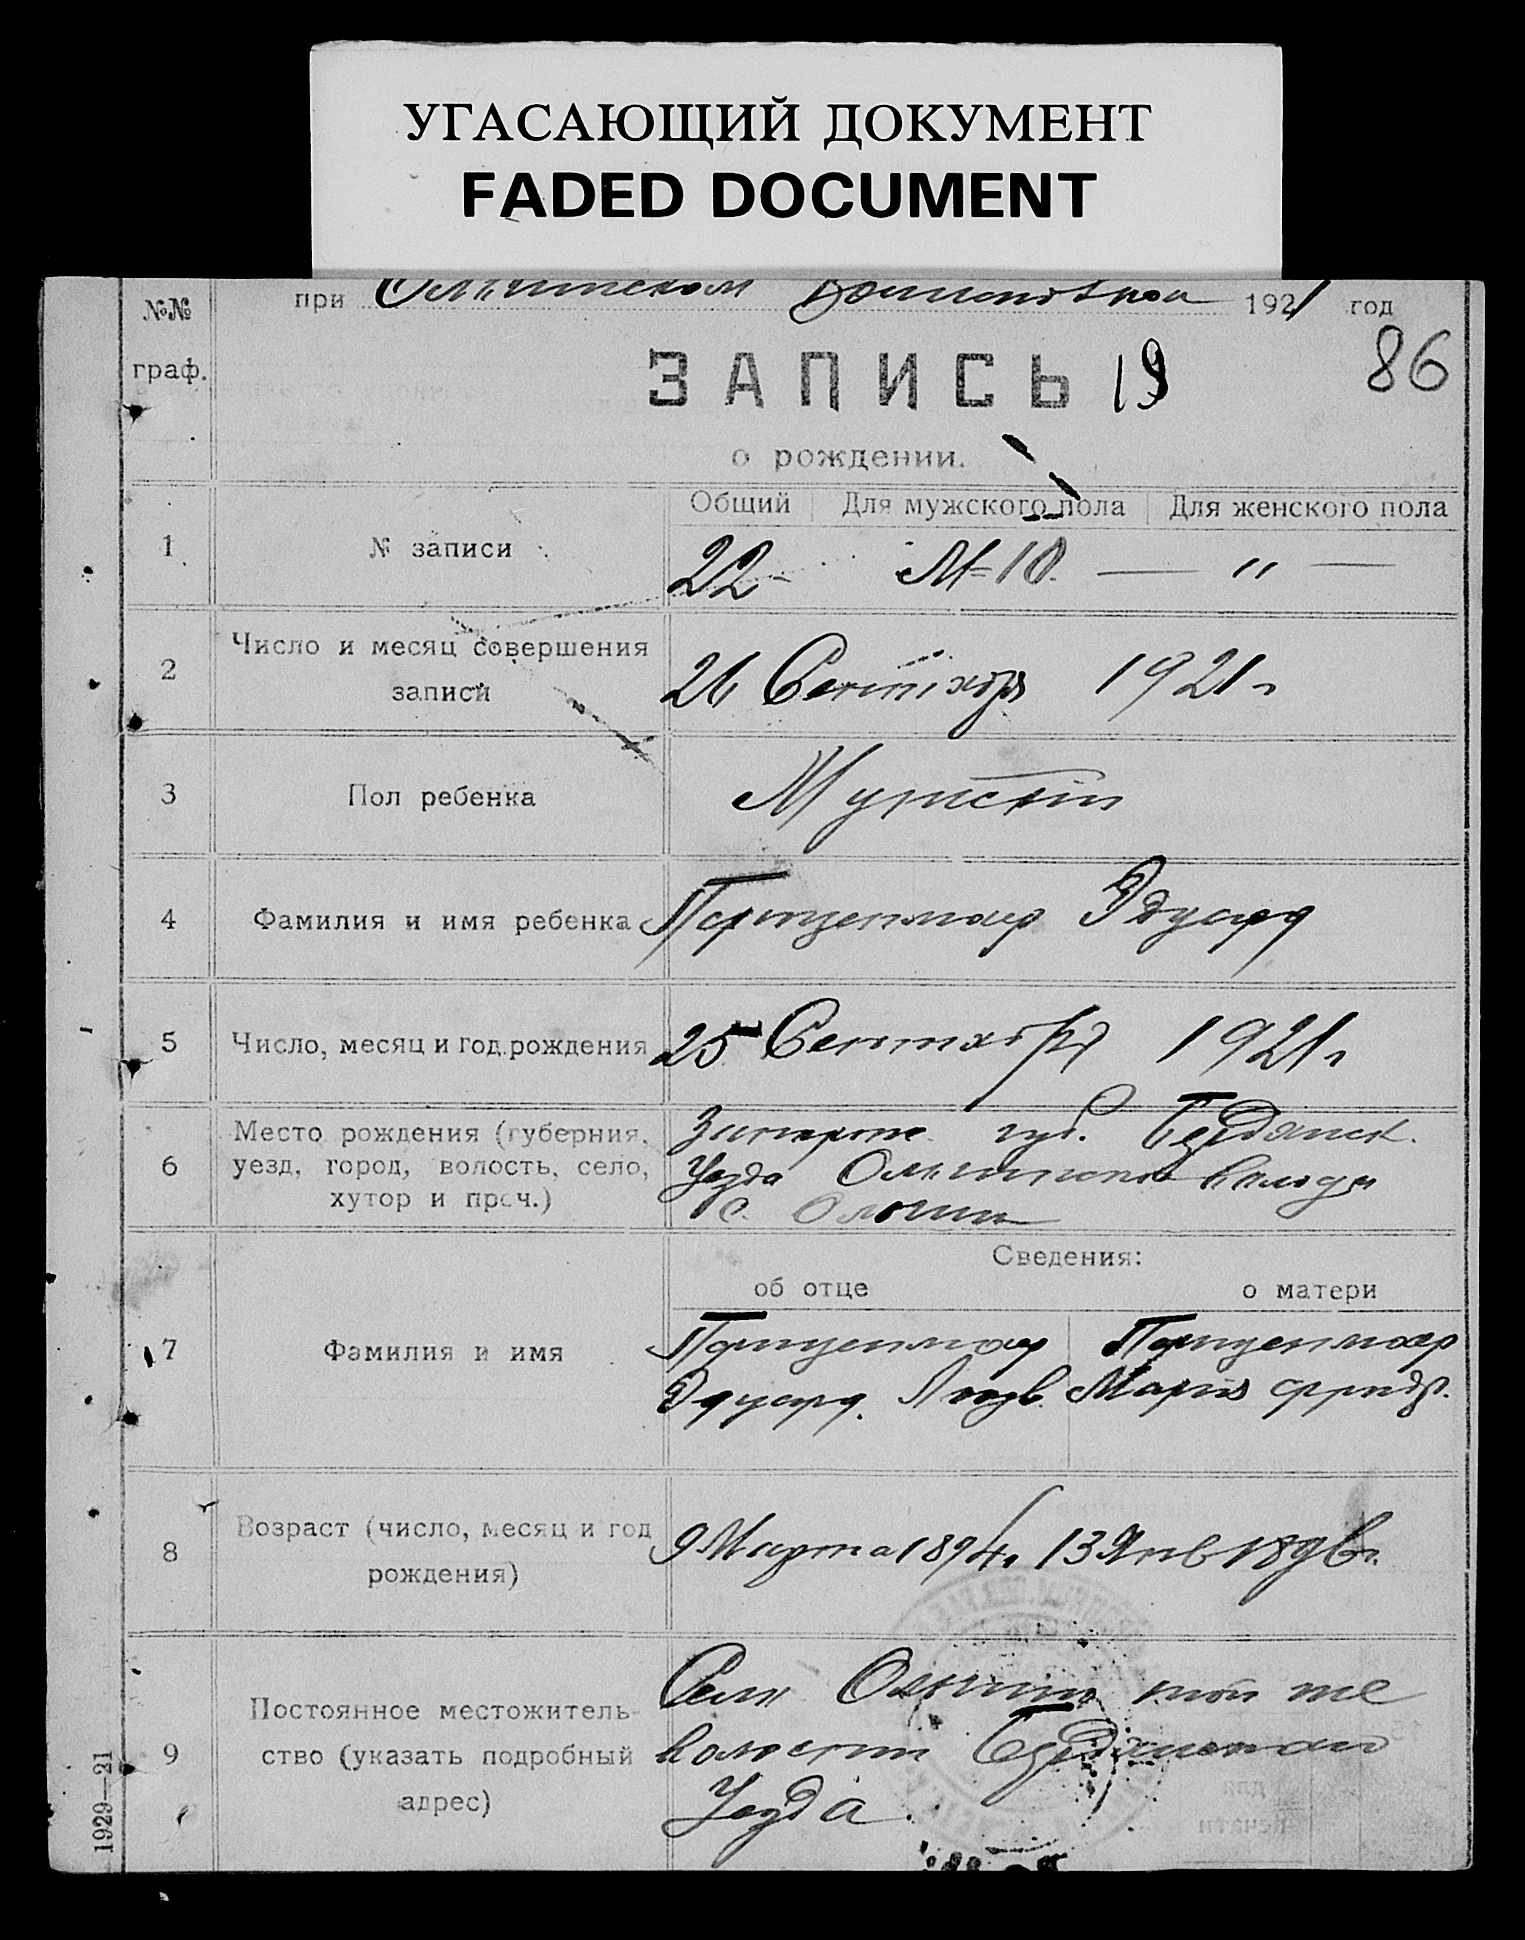 УГАСАЮЩИЙ ДОКУМЕНТ
FADED DOCUMENT
№№ граф.
при 1921 год
86
ЗАПИСЬ 19
о рождении.
Общий Для мужского пола Для женского пола
1 № записи 22 № 10. — " —
2 Число и месяц совершения записи 26 Сентября 1921 г
3 Пол ребенка Мужской
4 Фамилия и имя ребенка Эдуард
5 Число, месяц и год рождения 25 Сентября 1921 г
6 Место рождения (губерния, уезд, город, волость, село, хутор и проч.) губ. Бердянск.
уезда
с.
Сведения:
об отце о матери
7 Фамилия и имя
Эдуард Мария
8 Возраст (число, месяц и год рождения) 9 Марта 1894 г. 13 Янв 1896 г.
9 Постоянное местожительство (указать подробный адрес) Село той же
волости Бердянского
Уезда
1929—21